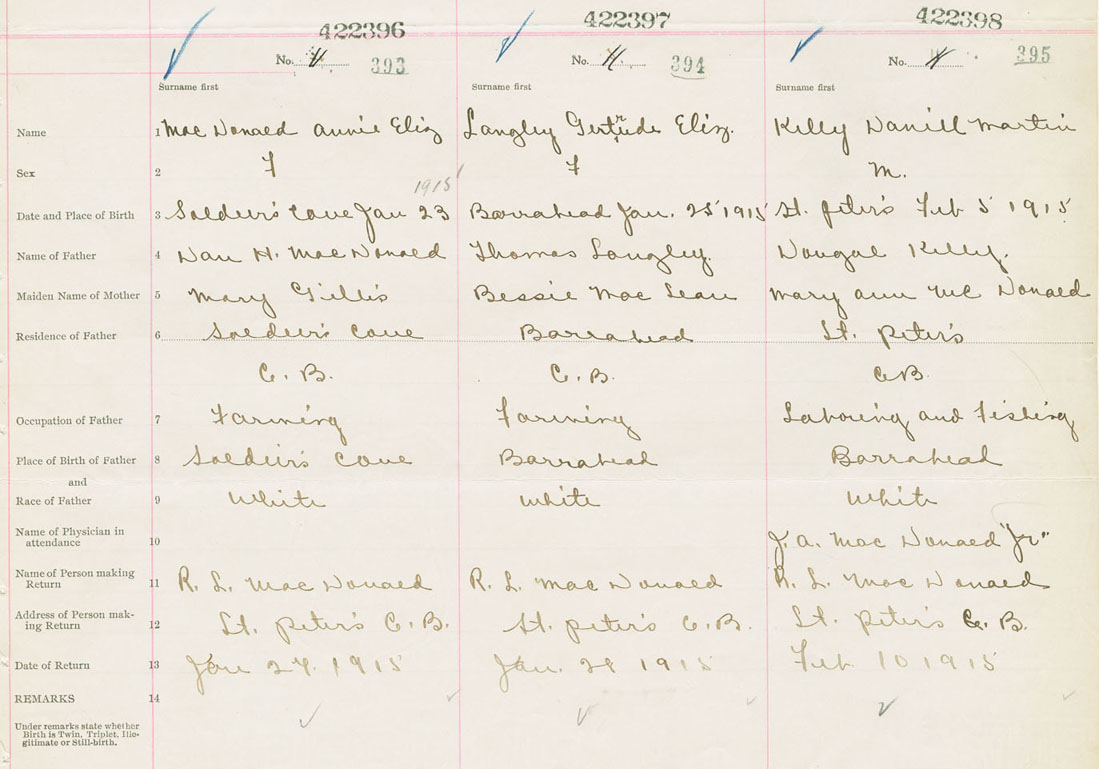 422396 422397 422398
No. 4 393 No. 4 394 No. 4 395
Surname first Surname first Surname first
Name 1 Mac Donald Annie Eliz Langley Gertrude Eliz. Kelly Daniel Martin
Sex 2 F F M.
1915
Date and Place of Birth 3 Soldier's Cove Jan 23 Barrahead Jan. 25 1915 St. Peter's Feb 5 1915
Name of Father 4 Dan H. MacDonald Thomas Langley. Dougal Kelly.
Maiden Name of Mother 5 Mary Gillis Bessie MacLean Mary Ann McDonald
Residence of Father 6 Soldier's Cove Barrahead St. Peter's
C. B. C. B. C B.
Occupation of Father 7 Farming Farming Laboring and Fishing
Place of Birth of Father 8 Soldier's Cove Barrahead Barrahead
and
Race of Father 9 White White White
Name of Physician in
attendance 10 J. A. Mac Donald "Jr"
Name of Person making
Return 11 R. L. MacDonald R. L. MacDonald R. L. MacDonald
Address of Person mak-
ing Return 12 St. Peter's C. B. St. Peter's C. B. St. Peter's C. B.
Date of Return 13 Jan 27. 1915 Jan. 29 1915 Feb. 10 1915
REMARKS 14
Under remarks state whether
Birth is Twin, Triplet, Ille-
gitimate or Still-birth.